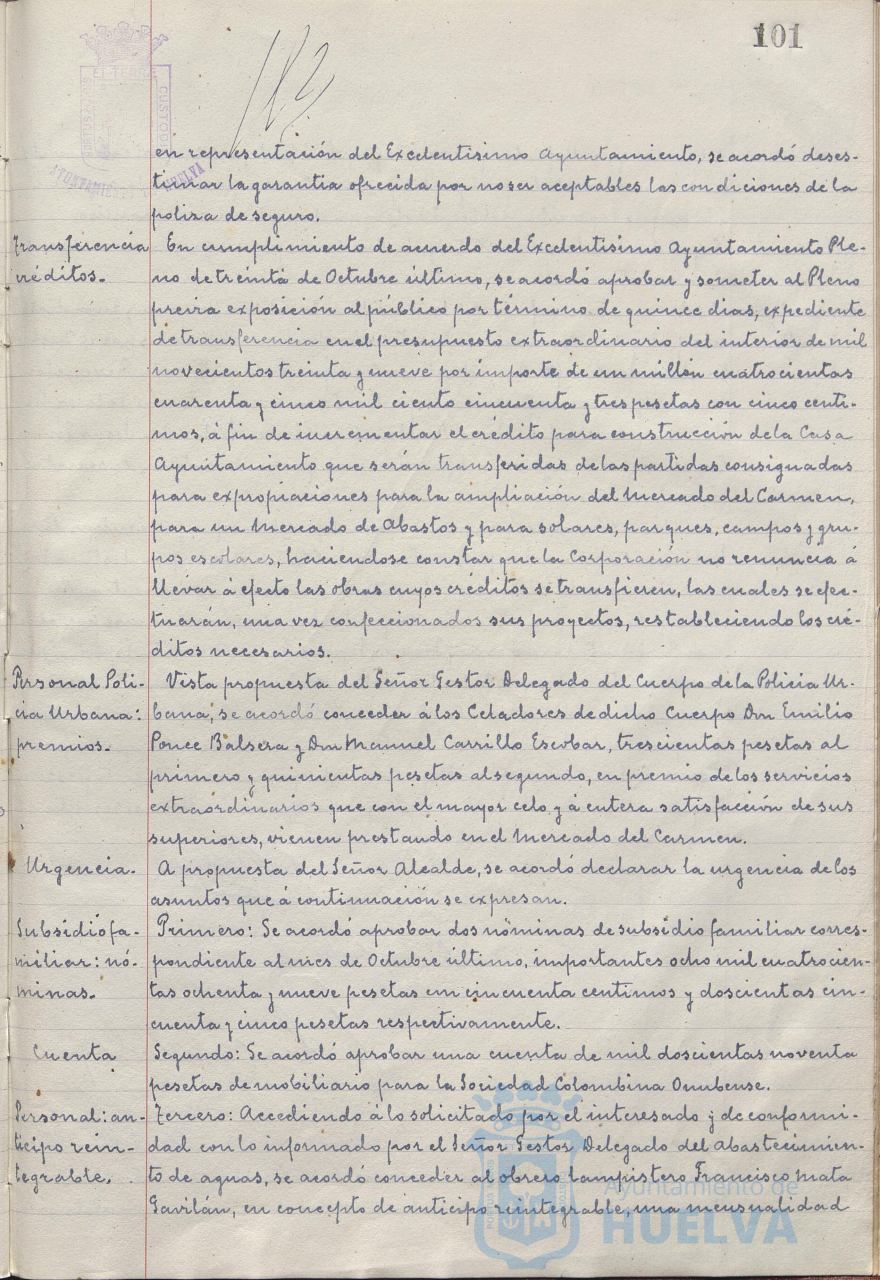 101
en representación del Excelentisimo Ayuntamiento, se acordó deses-
timar la garantia ofrecida por no ser aceptables las condiciones de la
poliza de seguro.
Transferencia
créditos.-
En cumplimiento de acuerdo del Excelentisimo Ayuntamiento Ple-
no de treinta de Octubre último, se acordó aprobar y someter al Pleno
previa exposición al público por término de quince dias, expediente
de transferencia en el presupuesto extraordinario del interior de mil
novecientos treinta y nueve por importe de un millón cuatrocientas
cuarenta y cinco mil ciento cincuenta y tres pesetas con cinco centi-
mos, á fin de incrementar el crédito para construcción de la Casa
Ayuntamiento que serán transferidas de las partidas consignadas
para expropiaciones para la ampliación del Mercado del Carmen,
para un Mercado de Abastos y para solares, parques, campos y gru-
pos escolares, haciendose constar que la Corporación no renuncia á
llevar á efecto las obras cuyos créditos se transfieren, las cuales se efec-
tuarán, una vez confeccionados sus proyectos, restableciendo los cré-
ditos necesarios.
Personal Poli-
cia Urbana:
premios.-
Vista propuesta del Señor Gestor Delegado del Cuerpo de la Policia Ur-
bana, se acordó conceder á los Celadores de dicho Cuerpo Don Emilio
Ponce Balsera y Don Manuel Carrillo Escobar, trescientas pesetas al
primero y quinientas pesetas al segundo, en premio de los servicios
extraordinarios que con el mayor celo y á entera satisfacción de sus
superiores, vienen prestando en el Mercado del Carmen.
Urgencia.-
A propuesta del Señor Alcalde, se acordó declarar la urgencia de los
asuntos que á continuación se expresan.
Subsidio fa-
miliar: nó-
minas.-
Primero: Se acordó aprobar dos nóminas de subsidio familiar corres-
pondiente al mes de Octubre último, importantes ocho mil cuatrocien-
tas ochenta y nueve pesetas con cincuenta centimos y doscientas cin-
cuenta y cinco pesetas respectivamente.
Cuenta
Segundo: Se acordó aprobar una cuenta de mil doscientas noventa
pesetas de mobiliario para la Sociedad Colombina Onubense.
Personal: an-
ticipo rein-
tegrable.
Tercero: Accediendo á lo solicitado por el interesado y de conformi-
dad con lo informado por el Señor Gestor Delegado del abastecimien-
to de aguas, se acordó conceder al obrero lampistero Francisco Mata
Gavilán, en concepto de anticipo reintegrable, una mensualidad
Ayuntamiento de
HUELVA